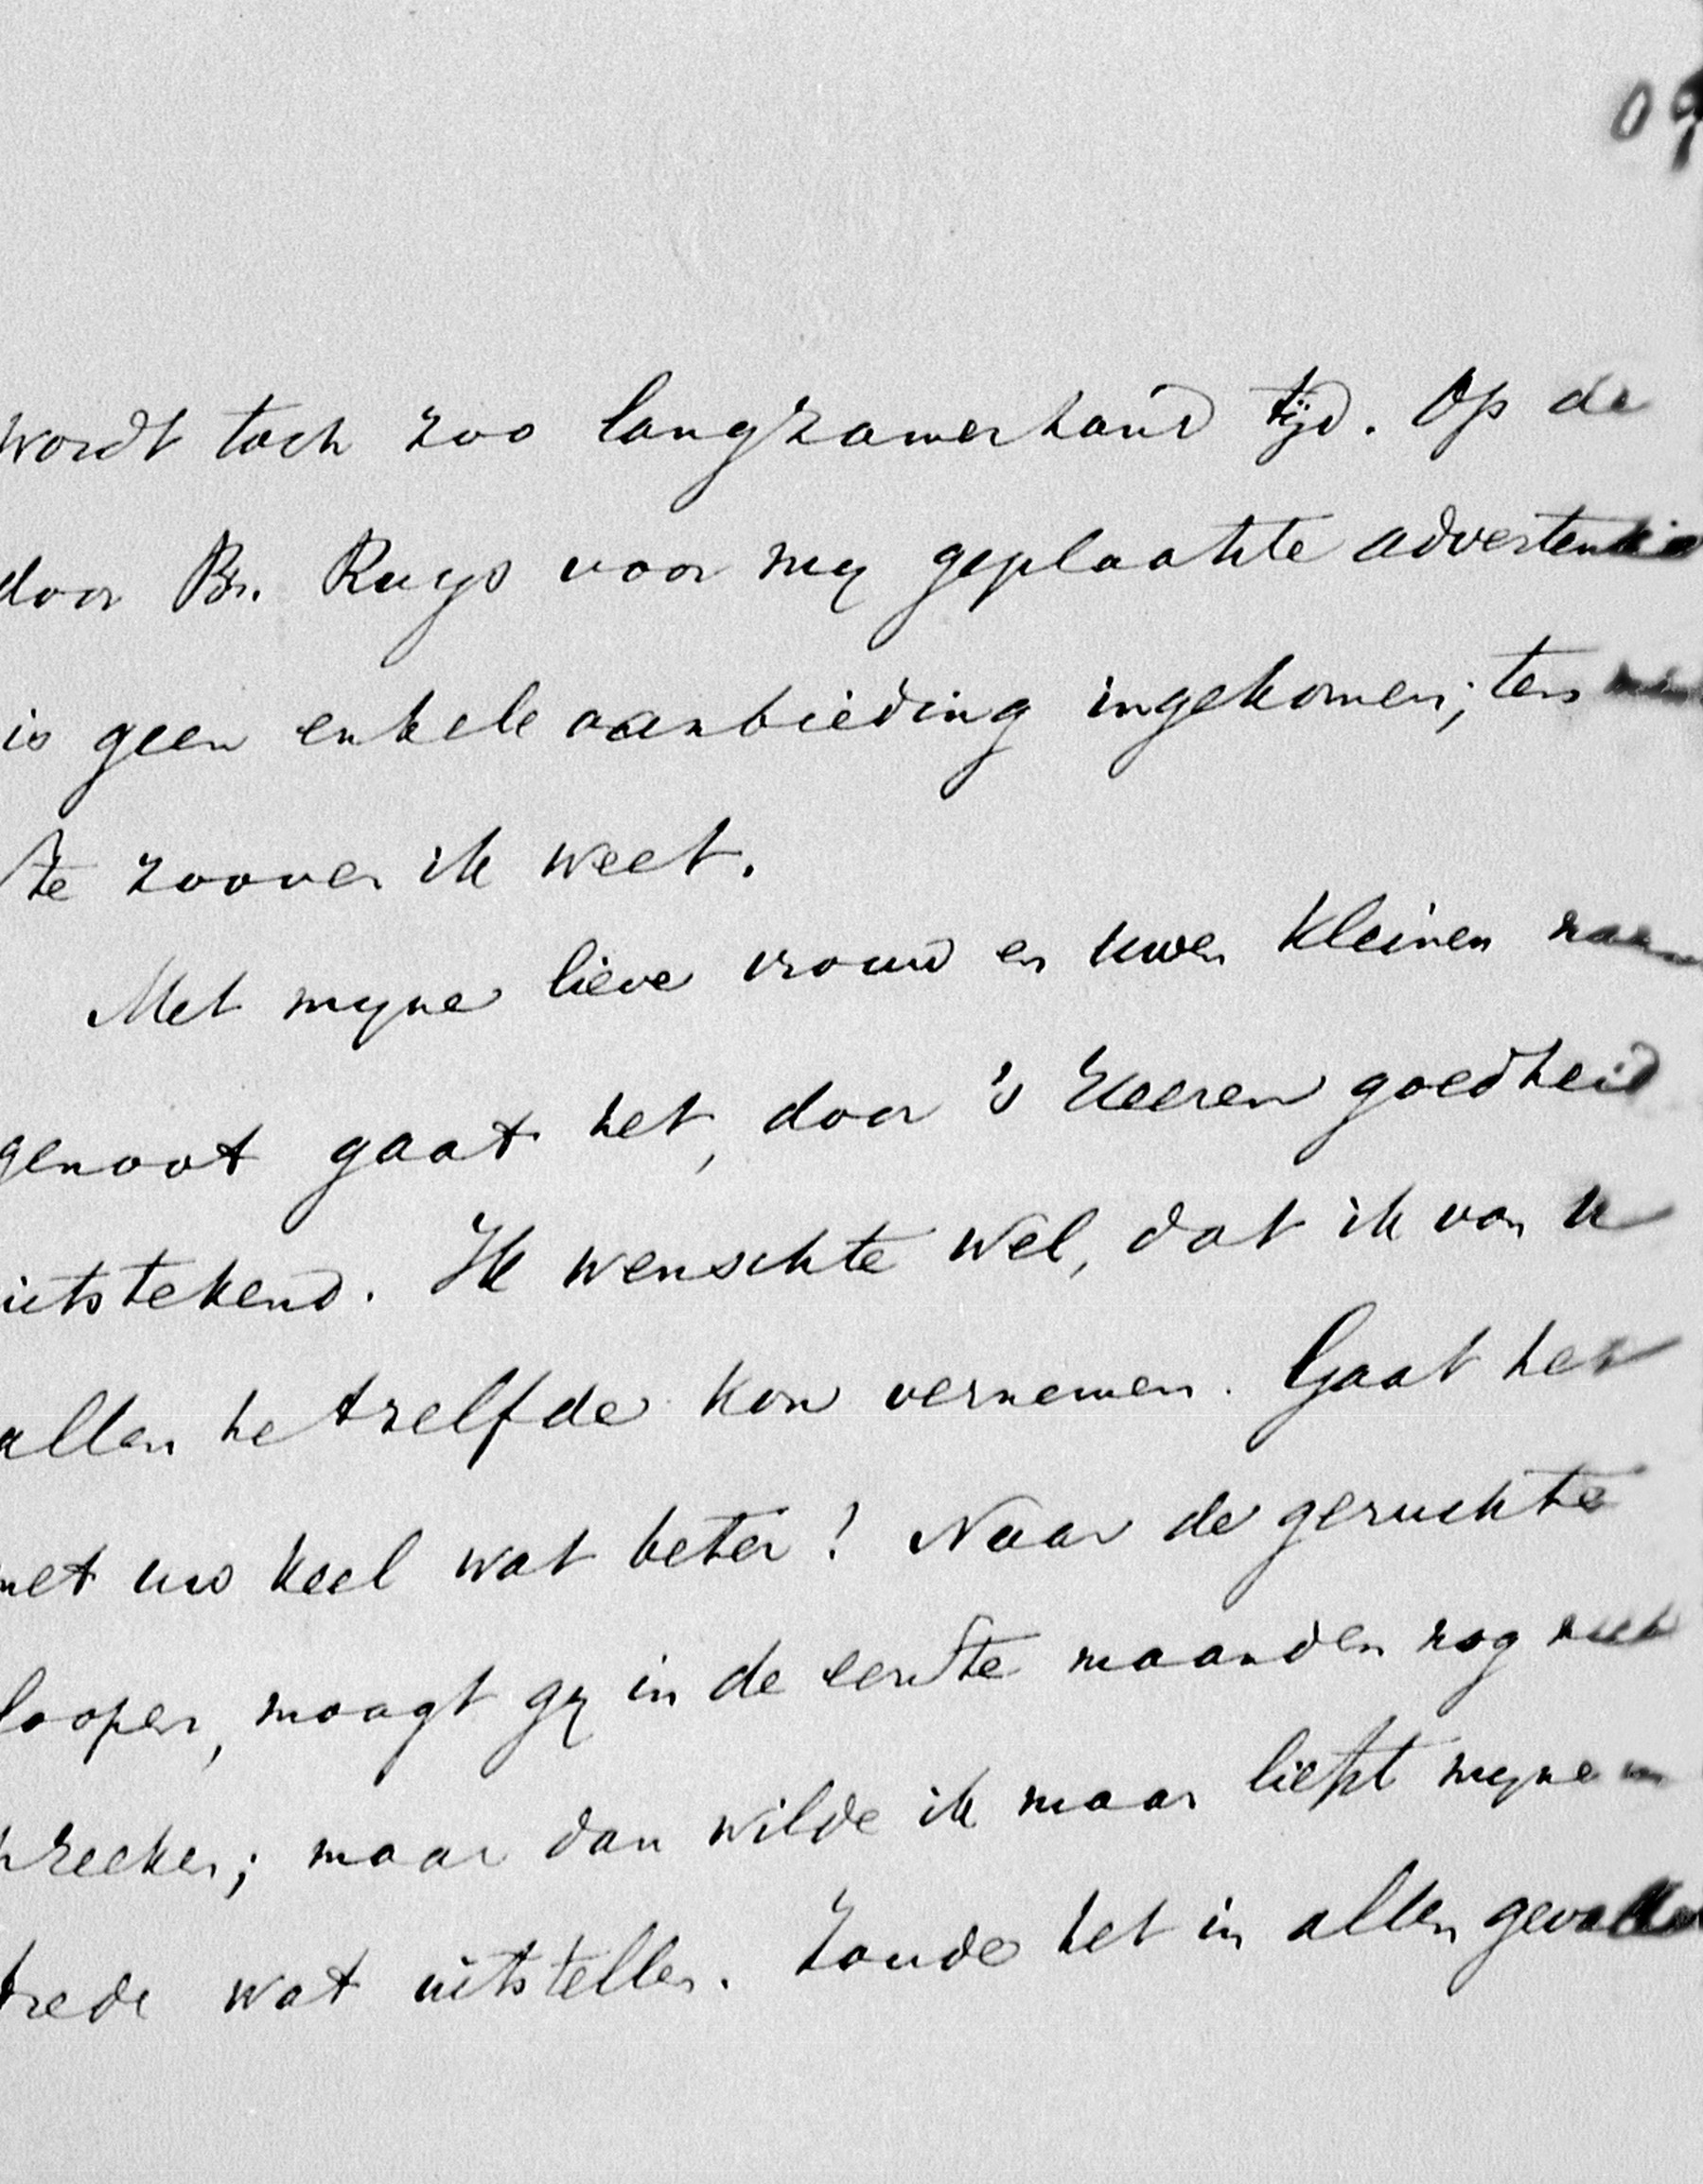 09
wordt toch zoo langzamerhand tijd. Op de
door Br. Ruys voor my geplaatste advertentie
is geen enkele aanbieding ingekomen; ten min
ste zoover ik weet.
Met myne lieve vrouw en uwen kleinen naam
genoot gaat het, door 's Heeren goedheid
uitstekend. Ik wenschte wel, dat ik van u
allen hetzelfde kon vernemen. Gaat het
met uw keel wat beter? Naar de geruchte
loopen, moogt gy in de eerste maanden nog niet
preeken; maar dan wilde ik maar liefst myne in
trede wat uitstellen. Zoude het in allen gevalle